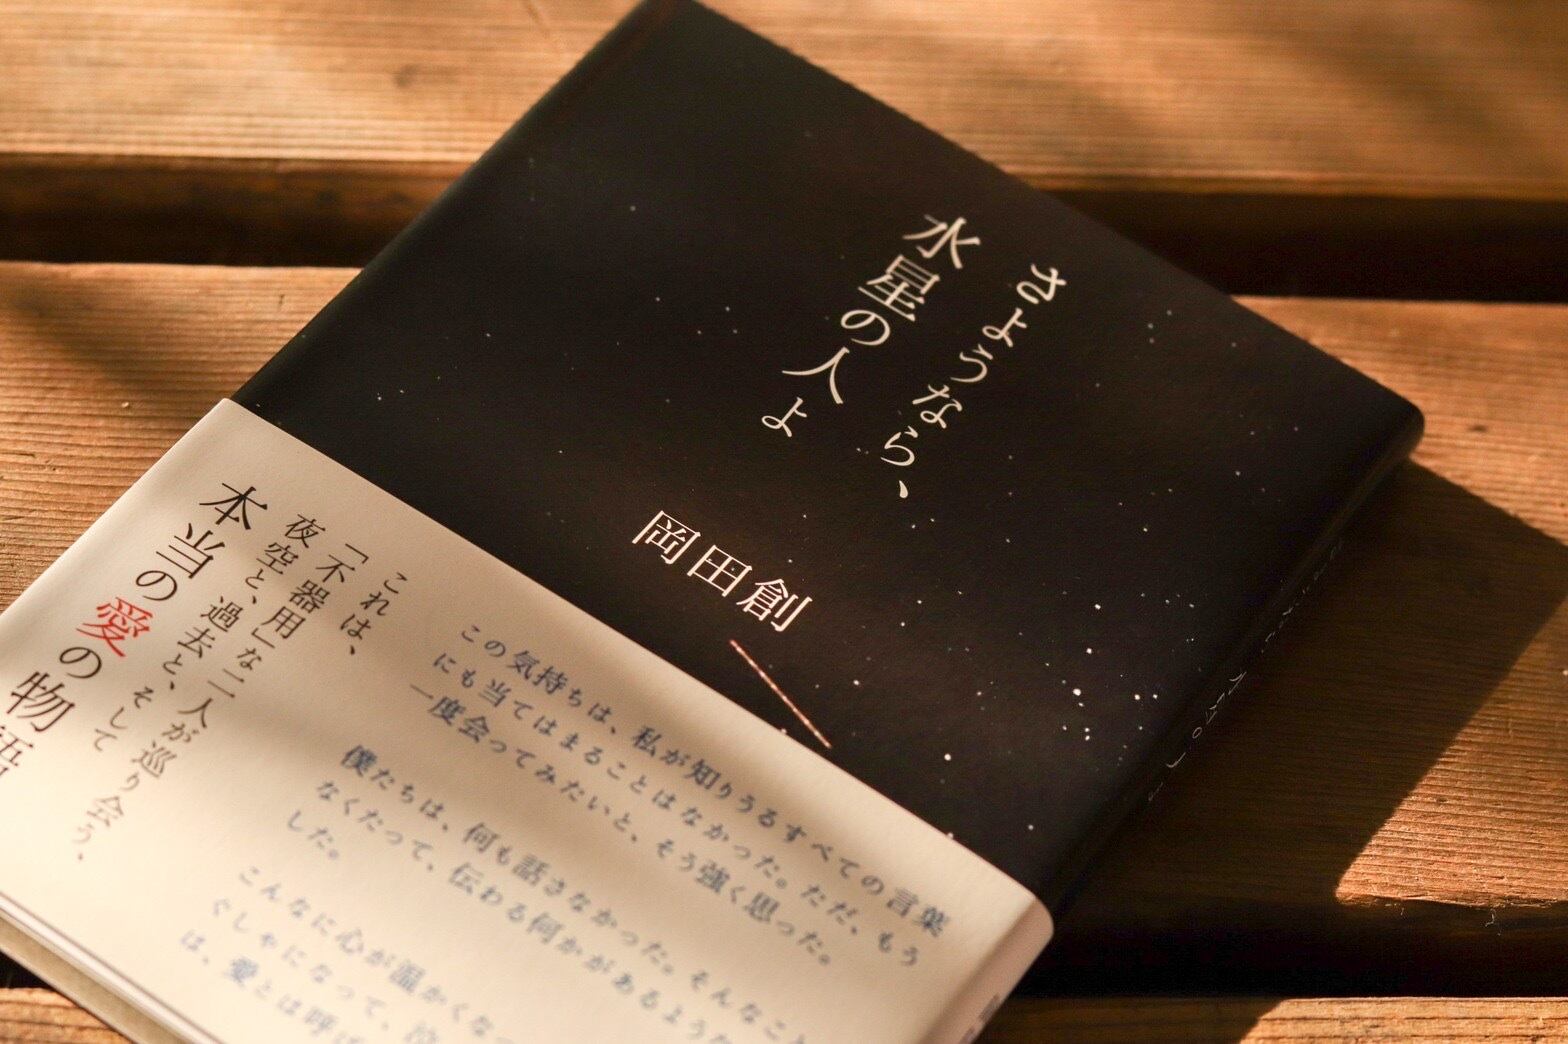 さようなら、
水星の人よ
岡田創
この気持ちは、私が知りうるすべての言葉
にも当てはまることはなかった。ただ、もう
一度会ってみたいと、そう強く思った。
僕たちは、何も話さなかった。そんなこと
なくたって、伝わる何かがあるような
した。
こんなに心が温かくな
ぐしゃになって、泣
は、愛とは呼ば
これは、
「不器用」な二人が巡り会う、
夜空と、過去と、そして
本当の愛の物語